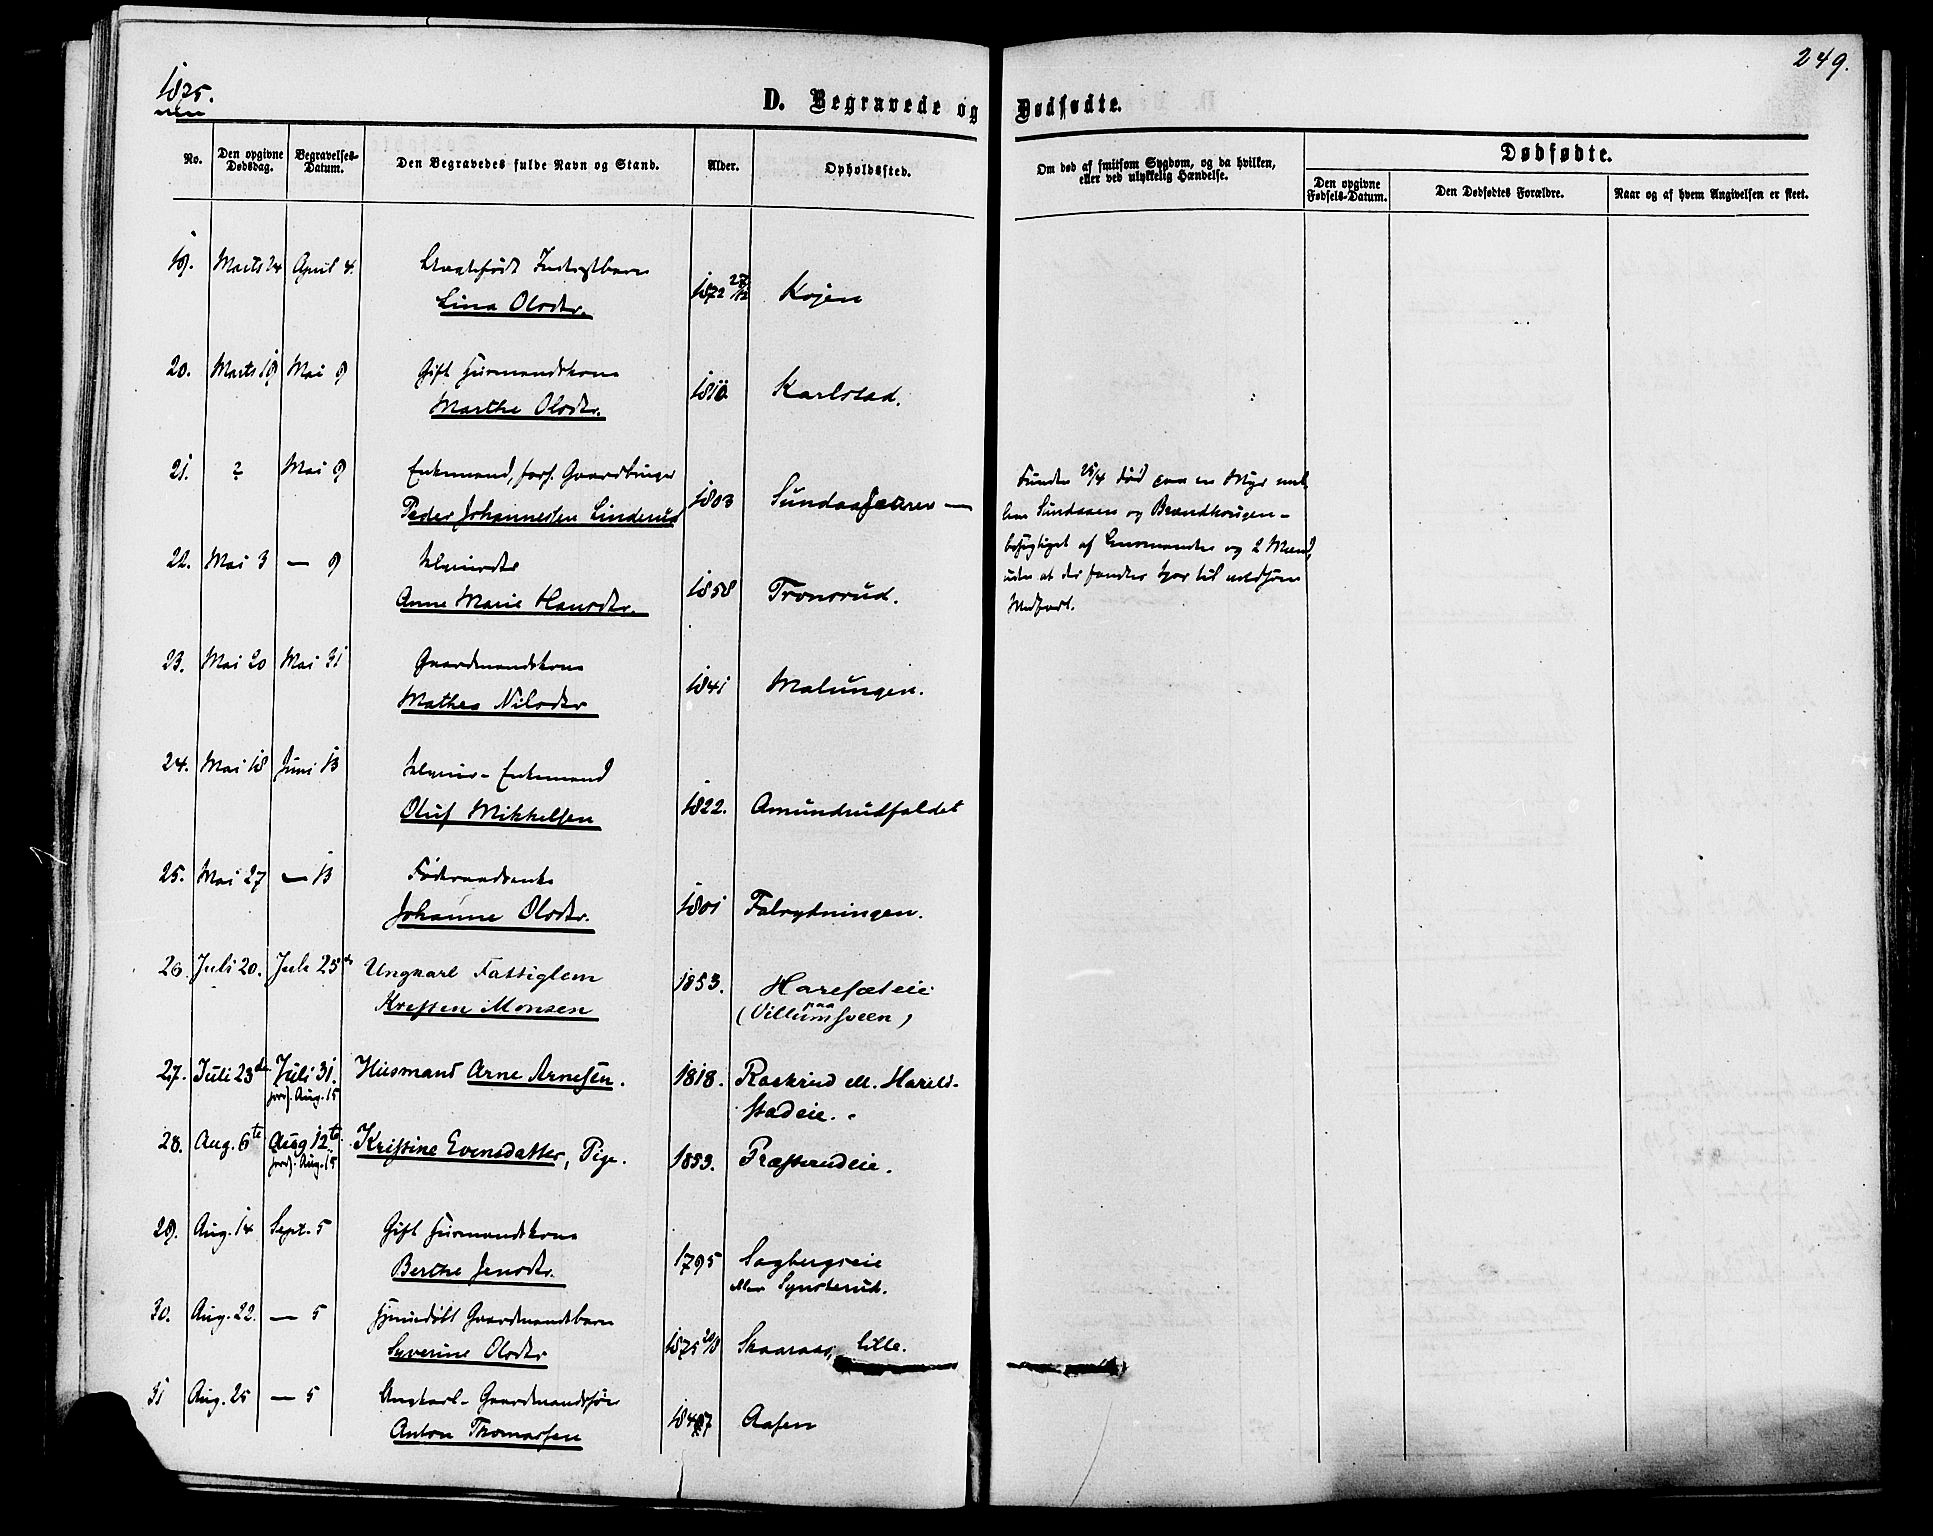 1875.
249.
D. Begravede og Dødfødte.
No.
Den opgivne Dødsdag.
Begravelses-Datum.
Den Begravedes fulde Navn og Stand.
Alder.
Opholdssted.
Om død af smitsom Sygdom, og da hvilken, eller ved ulykkelig Hændelse.
Dødfødte.
Den opgivne Fødsels-Datum.
Den Dødfødtes Forældre.
Naar og af hvem Angivelsen er skeet.
19. Marts 24 April 4. Uægtefødt
Lina Olsdtr. 1872 27/12 Kojen
20. Marts 19 Mai 9 Gift Husmandskone
Marthe Olsdtr. 1810 Karlstad.
21. ? Mai 9 Enkemand, forh. Gaardbruger
Peder Johannessen Linderud 1803 Sundaasæteren —
Funden 25/4 død paa en Myr mel-
lem Sundaasen og Brændhaugen -
besigtiget af Lensmanden og 2 Mænd,
uden at der fandtes Spor til voldsom
Medfart.
22. Mai 3 — 9
Anne Marie Hansdtr. 1858 Tronsrud.
23. Mai 20 Mai 31 Gaardmandskone
Mathea Nilsdtr 1841 Malungen.
24. Mai 18 Juni 13 Enkemand
Oluf Mikkelsen 1822. Amundrudfaldet
25. Mai 27 — 13 Føderaadsenke
Johanne Olsdtr. 1801 Falrydningen.
26. Juli 20. Juli 25de Ungkarl Fattiglem
Kresten Monsen 1853. Haresæteie
(paa Villumsveen)
27. Juli 23de Juli 31. Husmand Arne Arnesen. 1818. Raskrud ell. Harild-
jordf. Aug. 15 stadeie.
28. Aug. 6te Aug 12te Kristine Evensdatter, Pige. 1853. Præsterudeie.
jordf. Aug. 15
29. Aug. 14 Sept. 5 Gift Husmandskone
Berthe Jensdtr. 1795 Sagbergseie
eller Synsterud.
30. Aug. 22. — 5 Hjemmedøbt Gaardmandsbarn
Syverine Olsdtr 1875 20/8 Skaaraas, lille.
31 Aug. 25 — 5 Ungkarl - Gaardmandssøn
Anton Thomassen 1847 Aasen